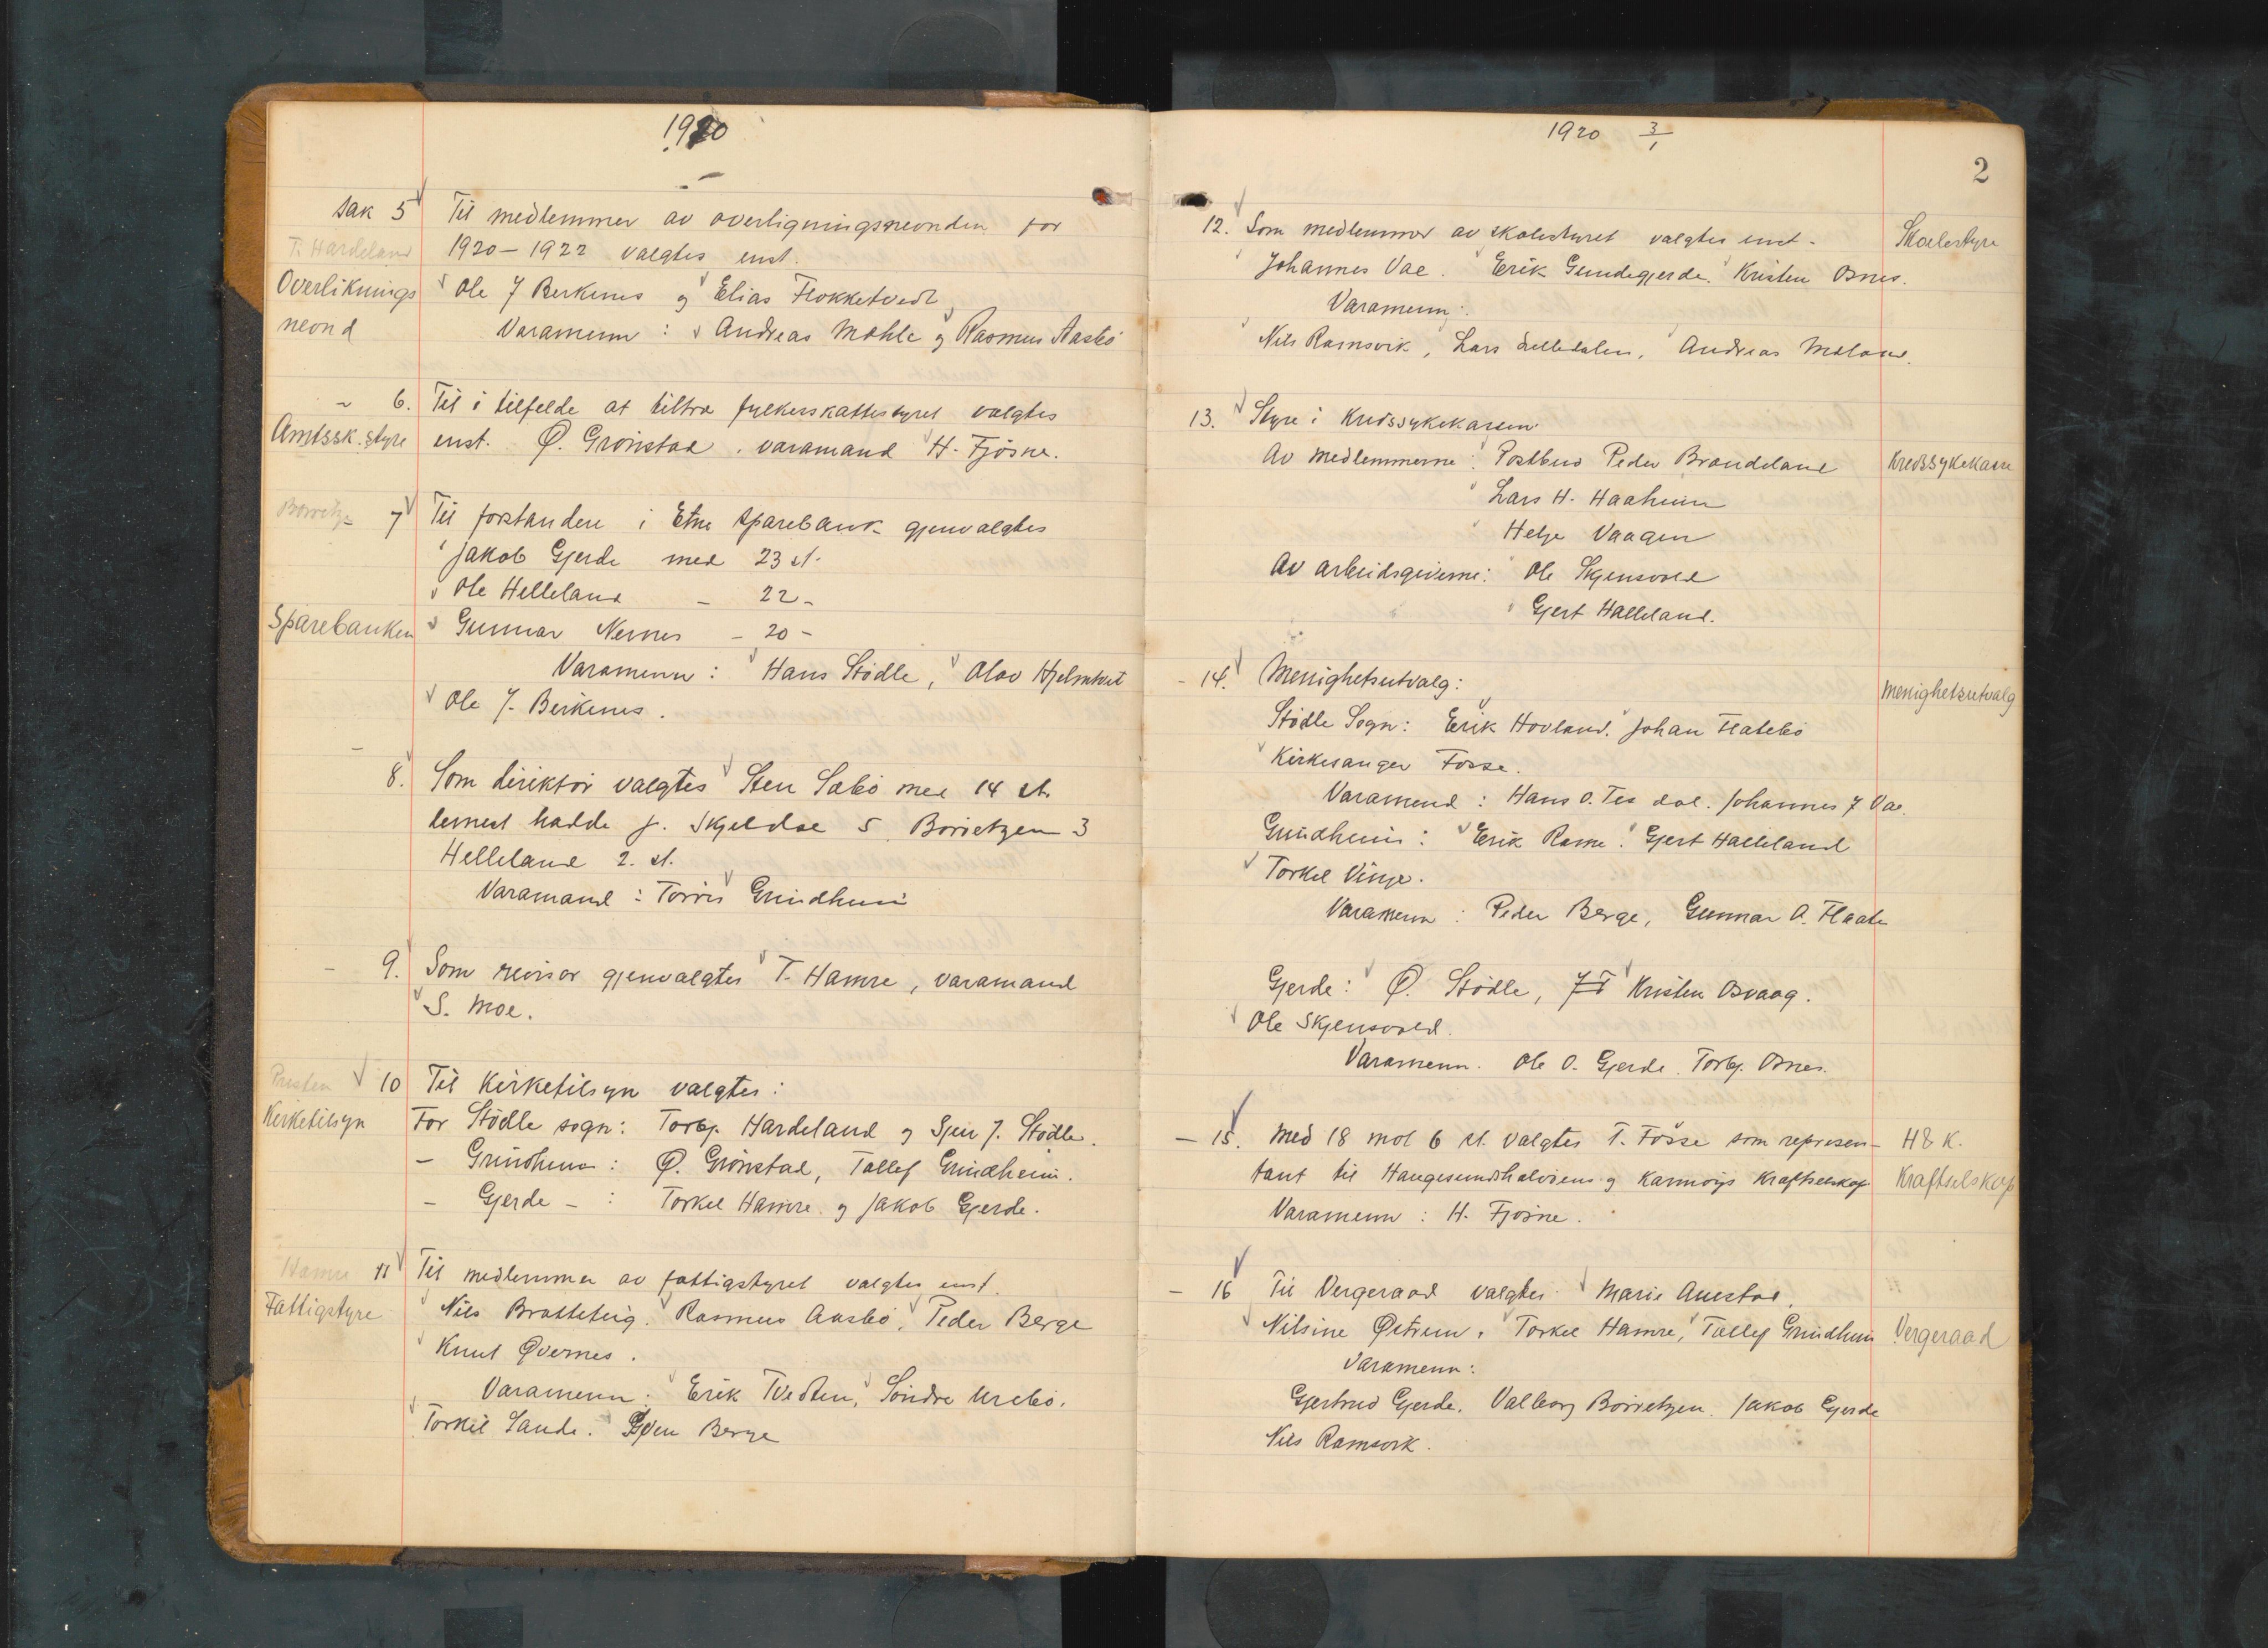 1920
sak 5 Til medlemmer av overligningsnevnden for
T. Hardeland 1920-1922 valgtes enst.
Overliknings Ole J Berkenes og Elias Flokketvedt
nevnd Varamenn : Andreas Mæhle og Rasmus Aasbö
~ 6. Til i tilfelde at tiltræ fylkesskattestyret valgtes
Amtssk.styre enst. Ø. Grönstad . varamand H. Fjösne.
7 Til forstandere i Etne Sparebank gjenvalgtes
Jakob Gjerde med 23 st.
Ole Helleland - 22 -
Sparebanken Gunnar Nernes - 20 -
Varamenn : Hans Stödle, Olav Hjelmtvet
Ole J. Berkenes.
8. Som direktör valgtes Sten Sæbö med 14 st.
dernest hadde J. Skjeldal 5 Börretzen 3
Helleland 2. st.
Varamand : Torris Grindheim
- 9. Som revisor gjenvalgtes T. Hamre, varamand
S. Moe.
Presten 10 Til Kirketilsyn valgtes :
Kirketilsyn For Stödle sogn : Torbj. Hardeland og Sjur J. Stödle.
- Grindheim : Ø. Grönstad, Tollef Grindheim.
- Gjerde - : Torkel Hamre og Jakob Gjerde.
Hamre 11 Til medlemmer av fattigstyret valgtes enst.
Fattigstyre Nils Bratteteig. Rasmus Aasbö, Peder Berge
Knut Øvernes.
Varamenn : Erik Tvedten, Söndre Urebö.
Torkel Sande. Sven Berge
1920 3/1
2
12. Som medlemmer av skolestyret valgtes enst. Skolestyre
Johannes Vae. Erik Grindegjerde. Kristen Osnes.
Varamenn :
Nils Ramsvik, Lars Lilledalen, Andreas Møland.
13. Styre i Kredssykekassen
Av medlemmerne : Postbud Peder Brandeland Kredssykekasse
Lars H. Haaheim
Helge Vaagen
Av arbeidsgiverne : Ole Skjensvold
Gjert Halleland.
- 14. Menighetsutvalg : Menighetsutvalg
Stödle Sogn : Erik Hovland. Johan Flatebö
Kirkesanger Fosse.
Varamend : Hans O. Tesdal. Johannes J Vae.
Grindheim : Erik Rame. Gjert Halleland
Torkel Vinje.
Varamenn : Peder Berge, Gunnar A. Flaate
Gjerde : Ø. Stödle, Kristen Osvaag.
Ole Skjensvold.
Varamenn. Ole O. Gjerde. Torbj. Osnes.
- 15. Med 18 mot 6 st. valgtes T. Fosse som represen- H & K.
tant til Haugesundshalvöens og Karmöys Kraftselskap Kraftselskap
Varamenn : H. Fjösne.
- 16 Til Vergeraad valgtes Marie Austad,
Nilsine Østrem. Torkel Hamre, Tollef Grindheim Vergeraad
Varamenn :
Gjertrud Gjerde. Valborg Börretzen. Jakob Gjerde
Nils Ramsvik.